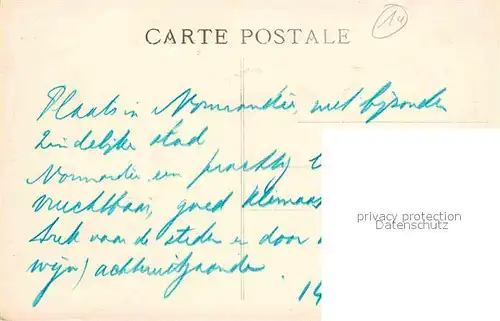 14
CARTE POSTALE
Plaats in Normandië, niet bijzonder
zindelijke stad
Normandië een prachtig
vruchtbaar, goed klimaa
streek van de steden is door
wijn) achteruitgaande.
privacy protection
Datenschutz
14